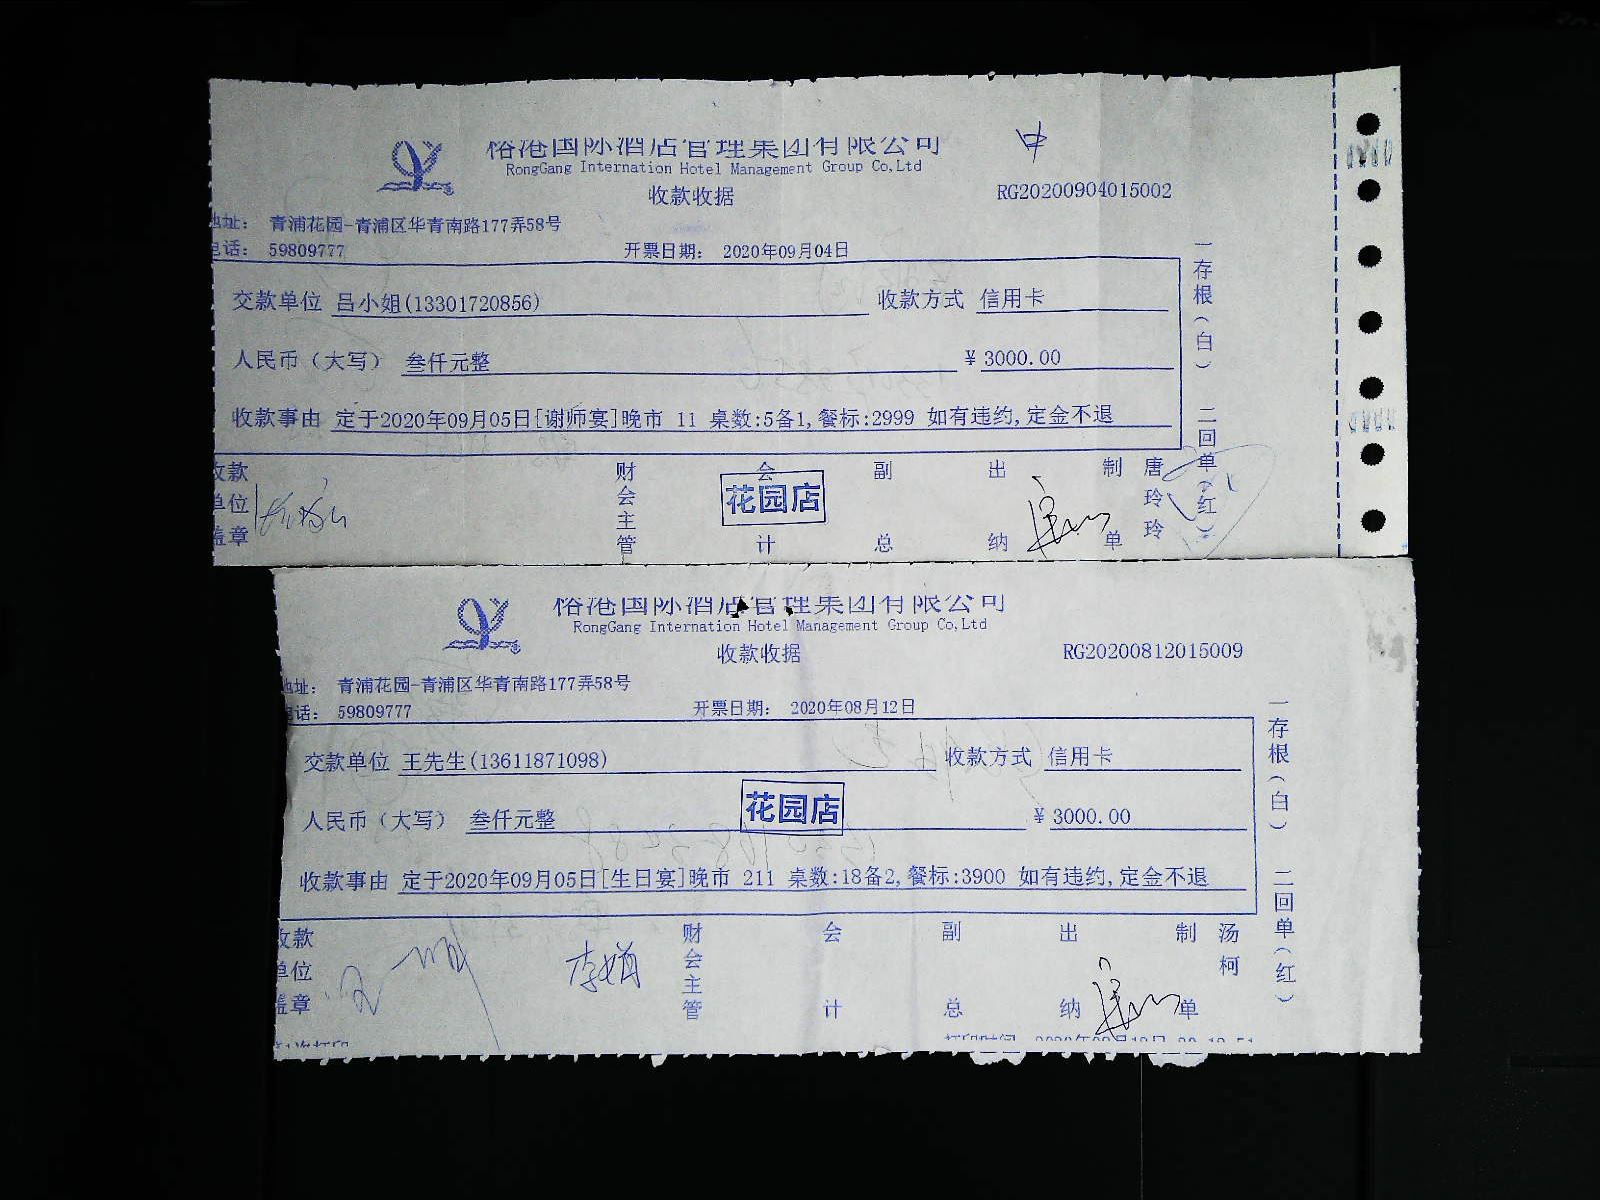 裕港国际酒店管理集团有限公司
RongGang Internation Hotel Management Group Co,Ltd
收款收据 RG20200904015002
地址： 青浦花园-青浦区华青南路177弄58号
电话： 59809777 开票日期： 2020年09月04日
交款单位 吕小姐(13301720856) 收款方式 信用卡
人民币（大写） 叁仟元整 ¥3000.00
收款事由 定于2020年09月05日[谢师宴]晚市 11 桌数:5备1,餐标:2999 如有违约,定金不退
一存根（白） 二回单（红）
收款单位盖章 财会主管 会计 副总 出纳 制单 唐玲玲
花园店
裕港国际酒店管理集团有限公司
RongGang Internation Hotel Management Group Co,Ltd
收款收据 RG20200812015009
地址： 青浦花园-青浦区华青南路177弄58号
电话： 59809777 开票日期： 2020年08月12日
交款单位 王先生(13611871098) 收款方式 信用卡
人民币（大写） 叁仟元整 ¥3000.00
花园店
收款事由 定于2020年09月05日[生日宴]晚市 211 桌数:18备2,餐标:3900 如有违约,定金不退
一存根（白） 二回单（红）
收款单位盖章 李娟 财会主管 会计 副总 出纳 制单 汤柯